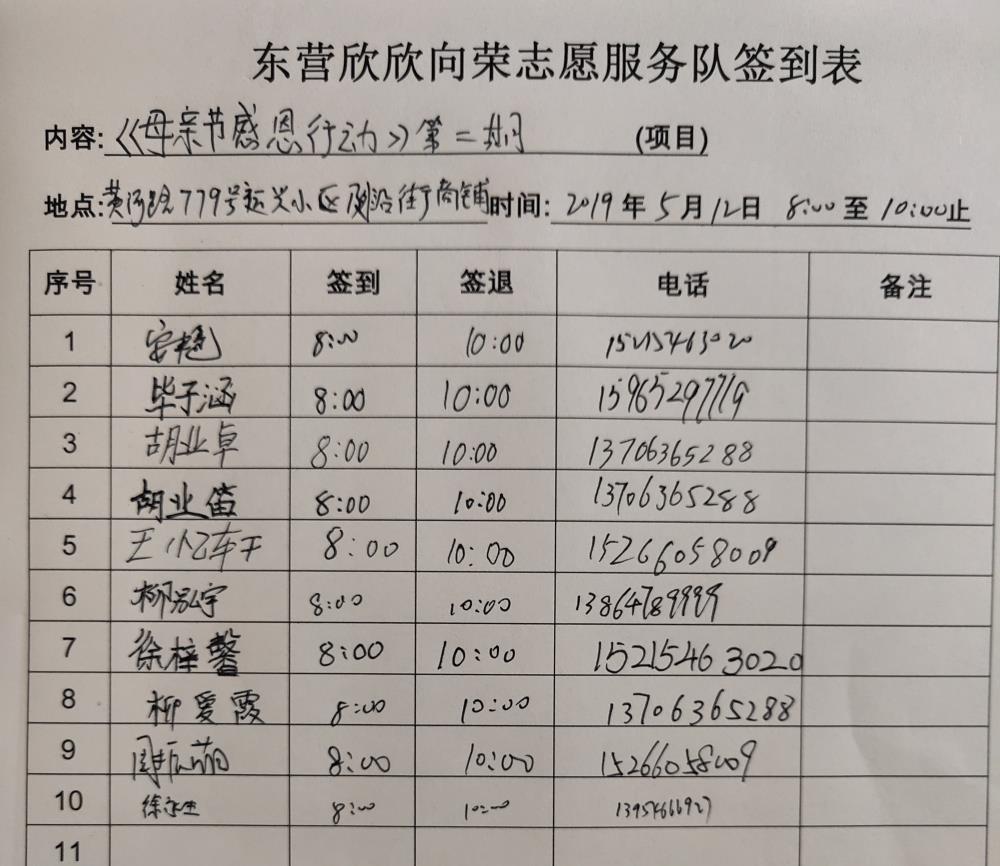 东营欣欣向荣志愿服务队签到表
内容:《母亲节感恩行动》第二期 (项目)
地点:黄河路779号运兴小区 沿街商铺 时间: 2019年5月12日 8:00至10:00止
序号 姓名 签到 签退 电话 备注
1 安艳 8:00 10:00 15215463020
2 毕子涵 8:00 10:00 15965297719
3 胡业卓 8:00 10:00 13706365288
4 胡业 8:00 10:00 13706365288
5 王 8:00 10:00 15266058009
6 柳泓宇 8:00 10:00 13864789999
7 徐梓馨 8:00 10:00 15215463020
8 柳爱霞 8:00 10:00 13706365288
9 8:00 10:00 15266058009
10 徐永生 8:00 10:00
11